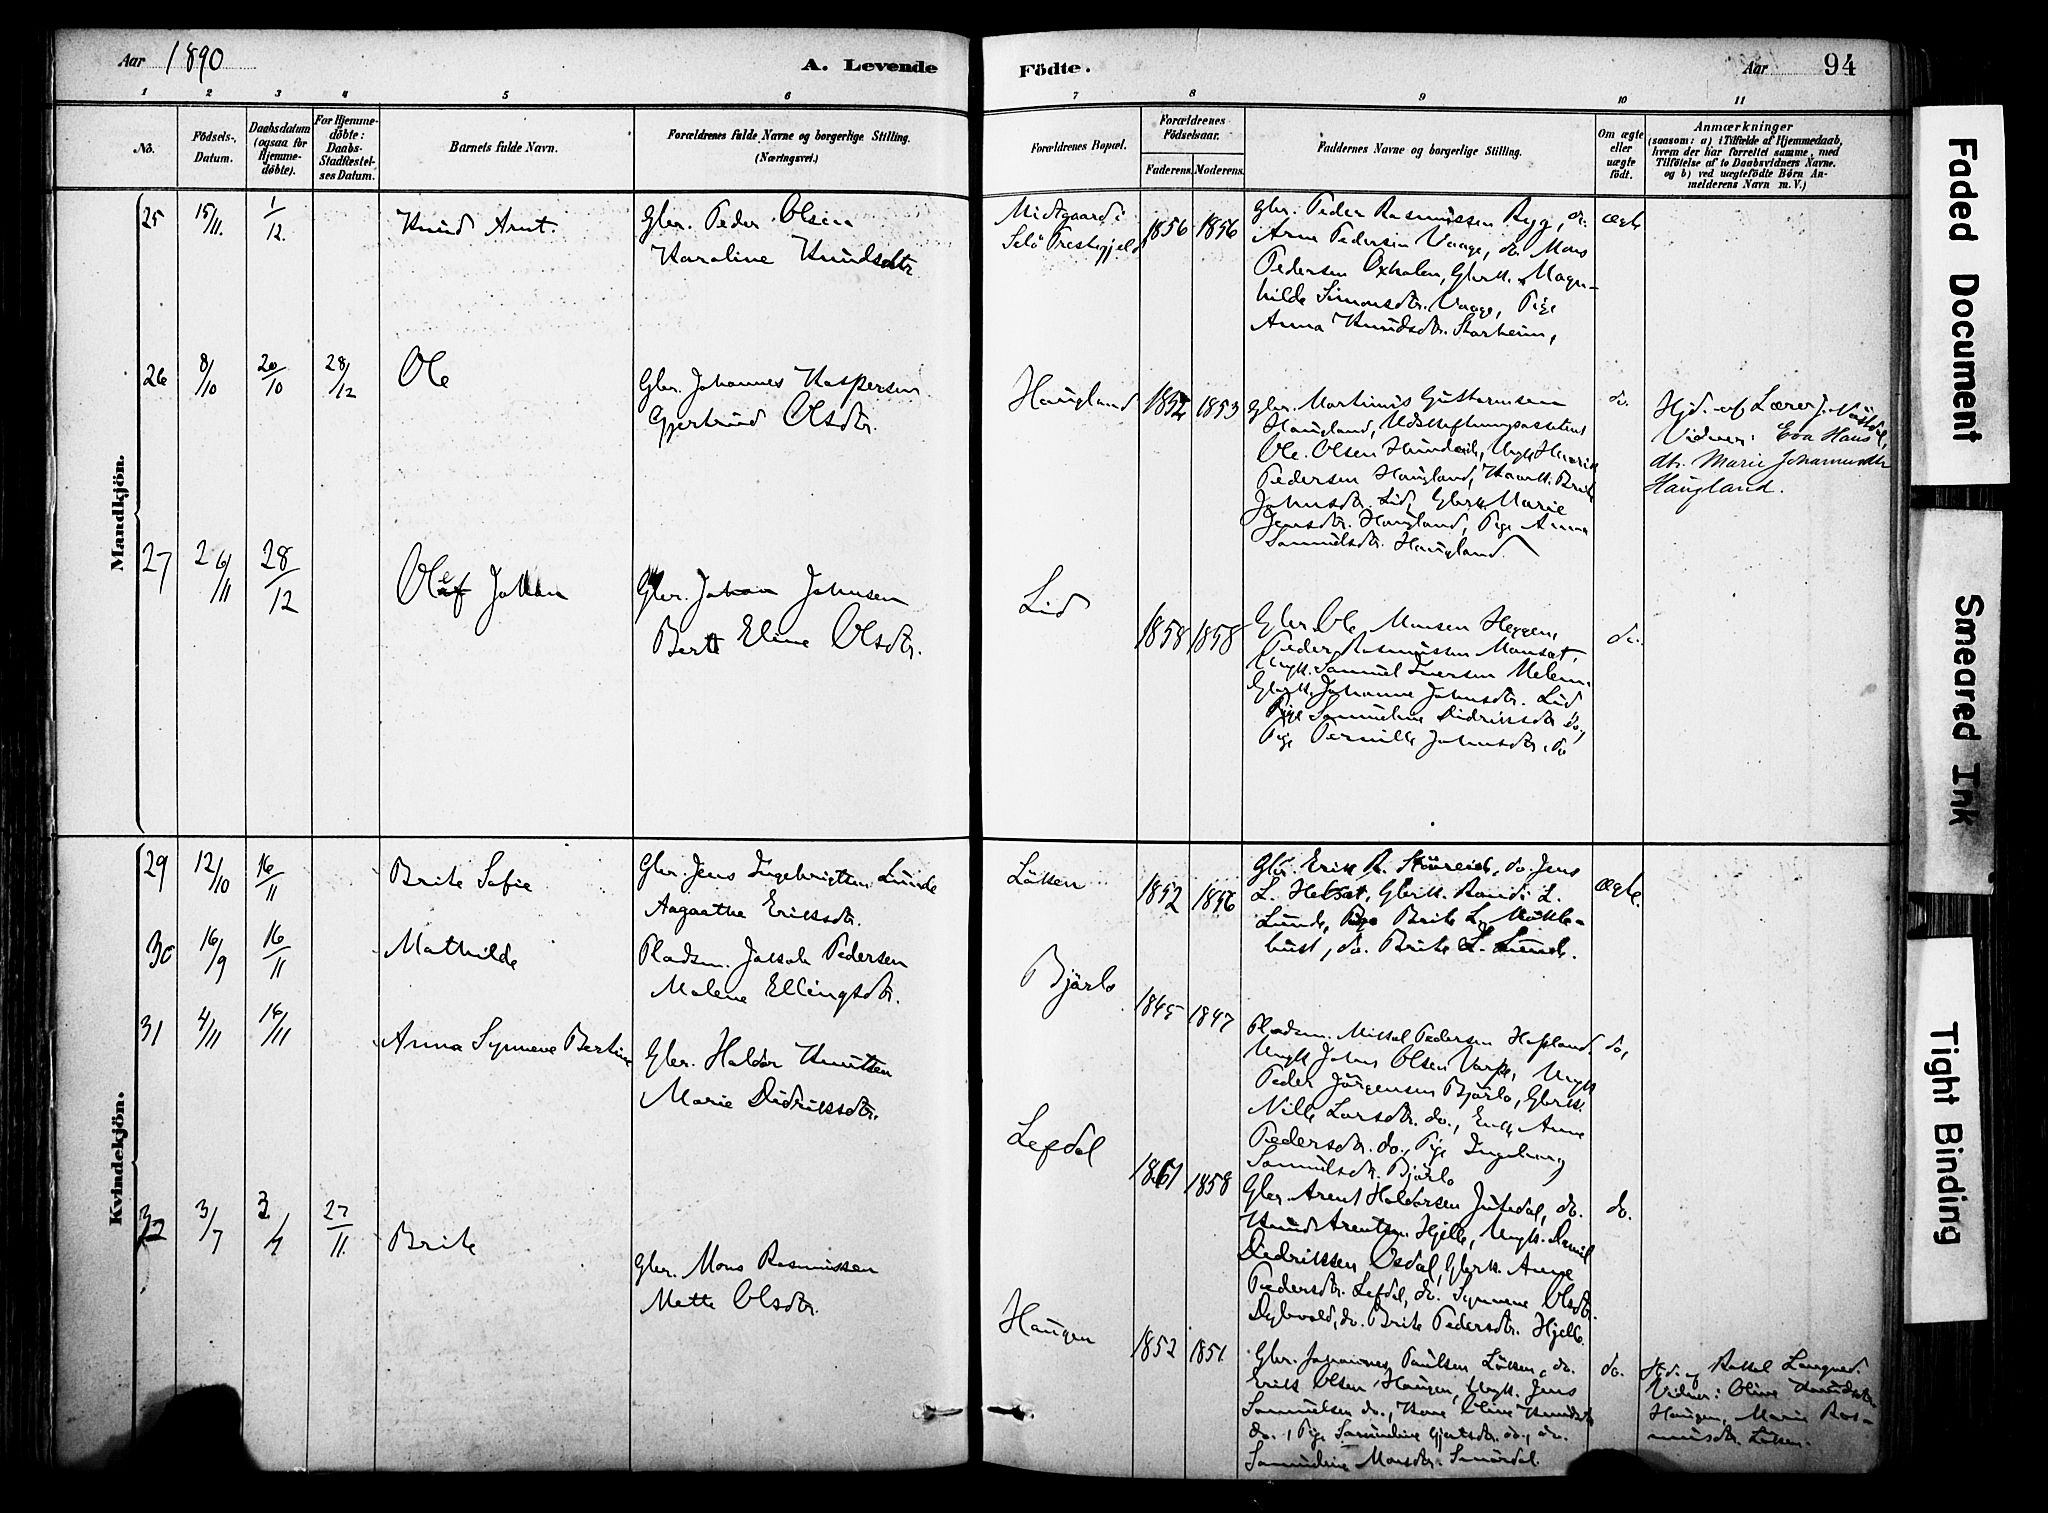 Aar 1890
A. Levende
Födte.
Aar
94
1 2 3 4 5 6 7 8 9 10 11
No.
Födsels-Datum.
Daabsdatum (ogsaa for Hjemme-døbte).
For Hjemme-døbte: Daabs-Stadfæstel-ses Datum.
Barnets fulde Navn.
Forældrenes fulde Navne og borgerlige Stilling.
(Næringsvei.)
Forældrenes Bopæl.
Forældrenes Födselsaar.
Faderens.
Moderens.
Faddernes Navne og borgerlige Stilling.
Om ægte eller uægte født.
Anmærkninger
(saasom: a) i Tilfælde af Hjemmedaab,
hvem der har forrettet samme, med
Tilföielse af to Daabsvidners Navne,
og b) ved uægtefödte Børn An-
melderens Navn m. V.)
Mandkjön.
25 15/11. 1/12. Knud Arnt. Gbr. Peder Olsen
Karoline Knudsdtr
Midtgaard i
Selö Prestegjeld
1856 1856
Gbr. Peder Rasmussen Ryg, do.
Arne Pedersen Vaage, do. Mons
Pedersen Oxhalen, Gbrk. Magn-
hilde Simonsdtr. Vaage, Pige
Anna Knudsdtr. Starheim,
ægte
26 8/10 20/10 28/12 Ole Gbr. Johannes Kaspersen
Gjertrud Olsdtr.
Haugland 1852 1853
Gbr. Martinus Guttormsen
Haugland, Udskiftningsassistent
Ole Olsen Hundeik, Ungk. Henrik
Pedersen Haugland, Kaark. Brite
Johnsdtr. Lid, Gbrk. Marie
Jensdtr. Haugland, Pige Anna
Samuelsdtr. Haugland.
do.
Hjd. af Lærer J. Naustdal,
Vidner: Eva Hans-
dtr. Marie Johannesdtr
Haugland.
27 26/11 28/12 Ole Johan Gbr. Johan Johnsen
Berte Eline Olsdtr.
Lid 1858 1858
Gbr. Ole Monsen Heggen,
Peder Rasmussen Monsæt,
Ungk. Samuel Iversen Melem.
Gbrk. Johanne Johnsdtr. Lid
Pige Samueline Didriksdtr do,
Pige Pernille Johnsdtr. do
do.
Kvindekjön.
29 12/10 16/11 Brite Sofie Gbr. Jens Ingebrigtsen Lunde
Aagaathe Eriksdtr.
Løkken 1852 1856
Gbr. Erik R. Støureid, do Jens
L. Helsæt, Gbrk. Randi L.
Lunde, Pige Brite L. Myklebust, do. Brite L. Lunde.
ægte.
30 16/9 16/11 Mathilde Pladsm. Jakob Pedersen
Malene Ellingsdtr.
Bjørlo 1845 1847
Pladsm. Mikkel Pedersen Hopland.
Ungk Johs Olsen Varpe, Ungk
Peder Jörgensen Bjørlo, Gbrk.
Nille Larsdtr. do., Enk Anne
Pedersdtr. do., Pige Ingeborg
Samuelsdtr. Bjørlo
do,
31 4/11 16/11 Anna Synneve Bertine Gbr. Haldor Knutsen
Marie Didriksdtr.
Lefdal 1861 1858
Gbr. Arent Haldorsen Jutedal, do.
Knud Arentsen Hjelle, Ungk. Daniel
Didriksen Osdal, Gbrk. Anne
Pedersdtr. Lefdal, do. Synneve Olsdtr.
Dybvold, do. Brite Pedersdtr. Hjelle.
do.
32 3/7 3/7 27/11. Brite Gbr. Mons Rasmussen
Mette Olsdtr.
Haugen 1852 1851
Gbr. Johannes Paulsen Løkken, do.
Erik Olsen Haugen, Ungk. Jens
Samuelsen do., Kone Oline Knudsdtr
do., Pige Samueline Gjertsdtr. do., do.
Samueline Monsdtr. Smørdal
do.
Hjd. af Rakel Langned.
Vidner: Oline Knudsdtr
Haugen, Marie Ras-
musdtr. Løkken.
Faded Document
Smeared Ink
Tight Binding